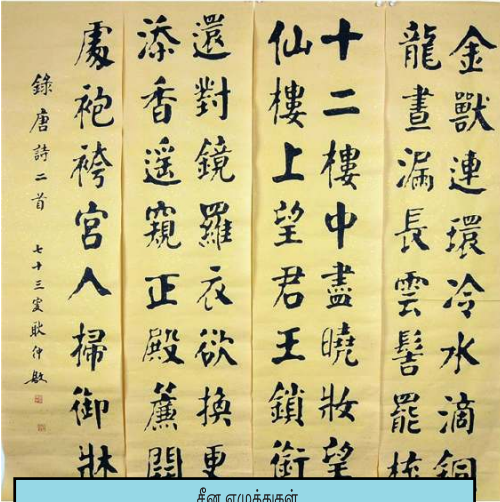 金獸連環冷水滴銅
龍晝漏長雲髻罷梳
十二樓中盡曉妝望
仙樓上望君王鎖銜
還對鏡羅衣欲換更
添香遥窺正殿簾開
處袍袴宮人掃御牀
錄唐詩二首
七十三叟耿仲敏
சீன எழுத்துகள்